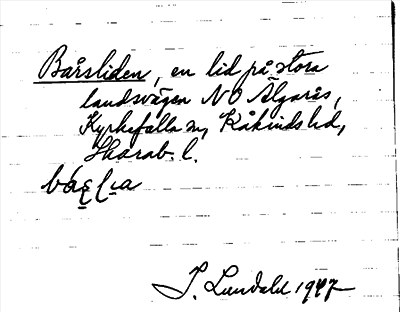 Bårsliden, en lid på stora
landsvägen NO Älgarås,
Kyrkefalla sn, Kåkinds hd,
Skarab. l.
I. Lundahl 1947